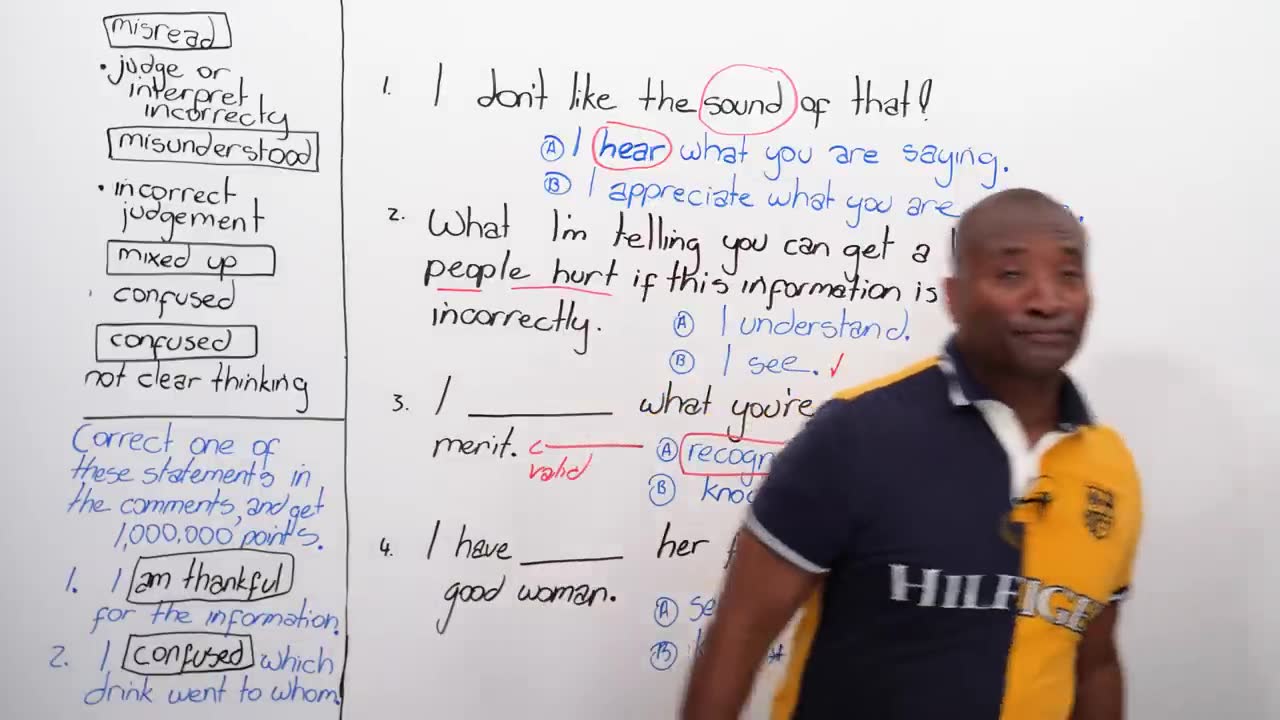 misread
• judge or
interpret
incorrecty
misunderstood
• incorrect
judgement
mixed up
confused
confused
not clear thinking
Correct one of
these statements in
the comments, and get
1,000,000 points.
1. I am thankful
for the information.
2. I confused which
drink went to whom.
1. I don't like the sound of that!
A I hear what you are saying.
B I appreciate what you are
2. What I'm telling you can get a
people hurt if this information is
incorrectly.
A I understand.
B I see. ✓
3. I ______ what you're
merit.
valid
A
B
4. I have ______ her
good woman.
A
B
HILFIGE